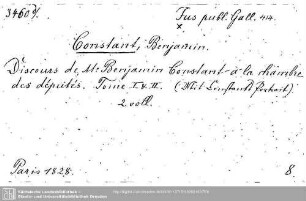 3460 d.
Jus publ. Gall. 44.
Constant, Benjamin.
Discours de M. Benjamin Constant à la chambre
des députés. Tome I & II. (Mit Constants Portrait).
2 voll.
Paris 1828.
8.
Sächsische Landesbibliothek -
Staats- und Universitätsbibliothek Dresden